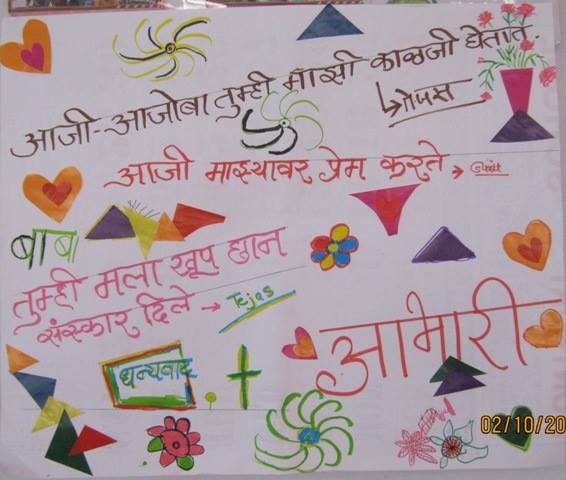 आजी-आजोबा तुम्ही माझी काळजी घेतात.
आजी माझ्यावर प्रेम करते →
बाबा
तुम्ही मला खूप छान
संस्कार दिले → Tejas
धन्यवाद
आभारी
02/10/20